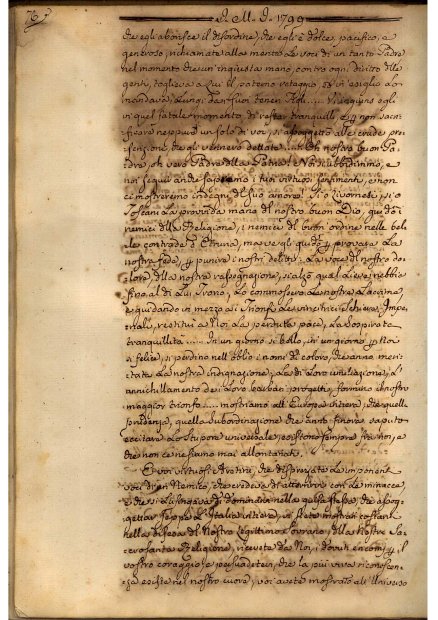 76
J. M. J. 1799
che egli aborrisce il disordine, che egli è dolce, pacifico, e
generoso, richiamate alla mente le voci di un tanto Padre
nel momento che un'ingiusta mano, contro ogni diritto delle
genti, toglieva a Lui il paterno retaggio, ed in esiglio Lo
mandava, Lungi da' suoi teneri Figli.... Vi ingiunse egli
in quel fatale momento di restar tranquilli, e per non sacri-
ficare neppure un solo di voi, si assoggettò alle crude pre-
tensioni, che gli vennero dettate.... Oh nostro buon Pa-
dre, oh vero Padre della Patria! Noi ubbidimmo, e
noi seguitando sapremo i tuoi virtuosi sentimenti, e non
ci mostreremo indegni del suo amore! Sì o Livornesi, sì o
Toscani la provvida mano del nostro buon Dio, guidò i
nemici della Religione, i nemici del buon ordine nelle bel-
le contrade d'Etruria, ma ve gli guidò per provare la
nostra fede, e per punire i nostri delitti: La voce del nostro do-
lore, della nostra rassegnazione, si alzò qual lieve nebbia
fino al di Lui Trono, Lo commossero le nostre Lacrime,
e guidando in mezzo a i Trionfi le vincitrici schiere Impe-
riali, restituì a Noi la perduta pace, la sospirata
tranquillità.... In un giorno sì bello, in un giorno per Noi
sì felice, si perdino nell'oblio i nomi di coloro, che hanno meri-
tata la nostra indignazione, la di loro umiliazione, l'
annichilamento dei loro barbari progetti, formino il nostro
maggior trionfo.... mostriamo all'Europa intiera, che quella
prudenza, quella subordinazione che hanno finora saputo
eccitare lo stupore universale, esistono sempre fra noi, e
che non ce ne siamo mai allontanati.
E voi virtuosi Aretini, che disprezzate le imponenti
voci di un Nemico, che credeva di atterrirvi con le minacce,
e che si lusingava di dominar nella guisa stessa, che assog-
gettar seppe l'Italia intiera, vi siete mostrati costanti
nella difesa del Nostro legittimo Sovrano, della nostra Sa-
crosanta Religione, ricevete da Noi, i dovuti encomj per il
vostro coraggio, e persuadetevi, che la più viva riconoscen-
za esiste nel nostro cuore; voi avete mostrato all'Universo